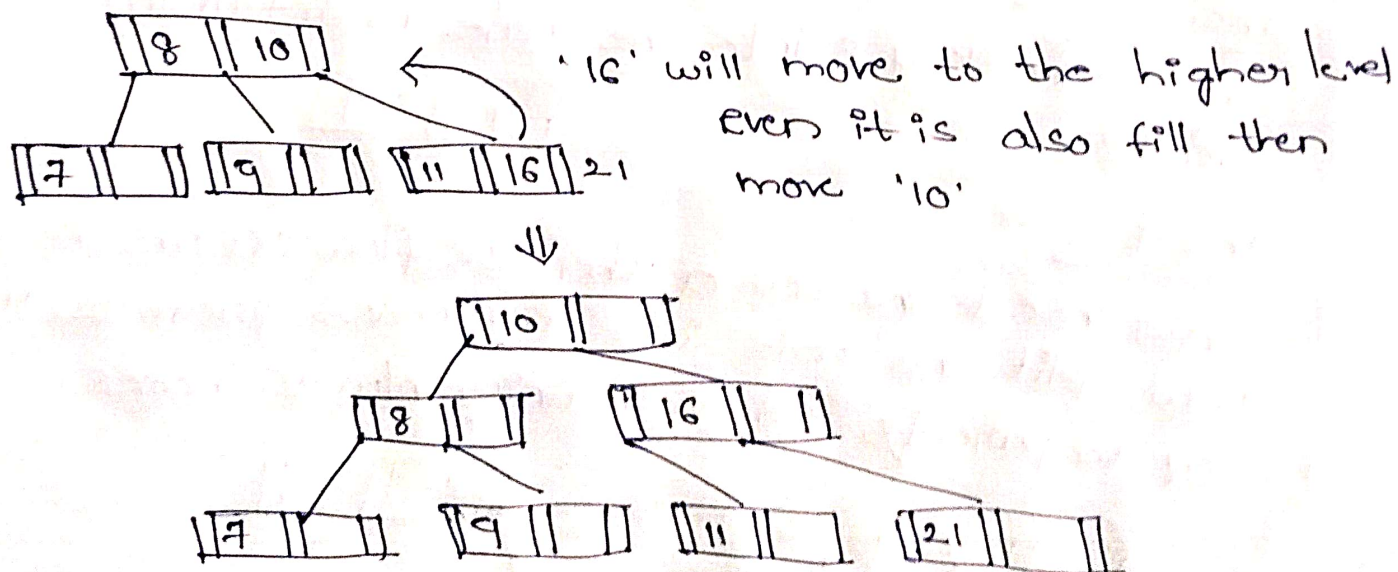 8 10
'16' will move to the higher level
even it is also fill then
7 9 11 16 21 move '10'
⇓
10
8 16
7 9 11 21